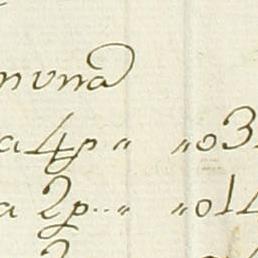 nvna
a 4p " "o3
a 2p.." "o14